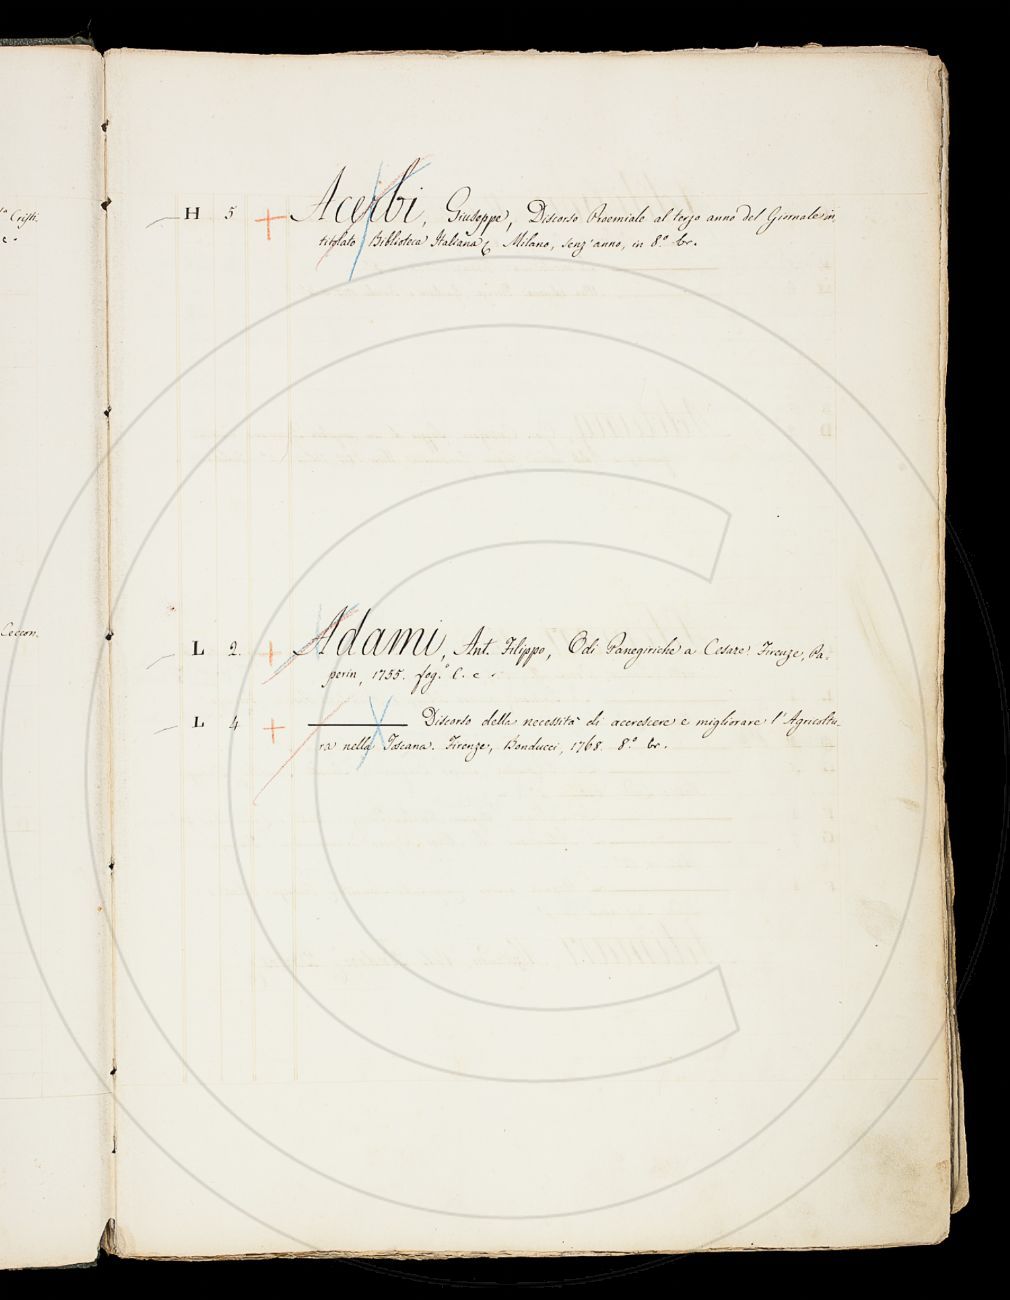 ta Cristi.
c.
H 5 Acerbi, Giuseppe, Discorso Proemiale al terzo anno del Giornale in,
titolato Biblioteca Italiana. Milano, senz'anno, in 8.o br.
Ceccon.
L 2. Adami, Ant. Filippo, Odi Panegiriche a Cesare. Firenze, Pa,
perin, 1755. fog.o l. c.
L 4 Discorso della necessità di accrescere e migliorare l'Agricoltu,
ra nella Toscana. Firenze, Bonducci, 1768. 8.o br.